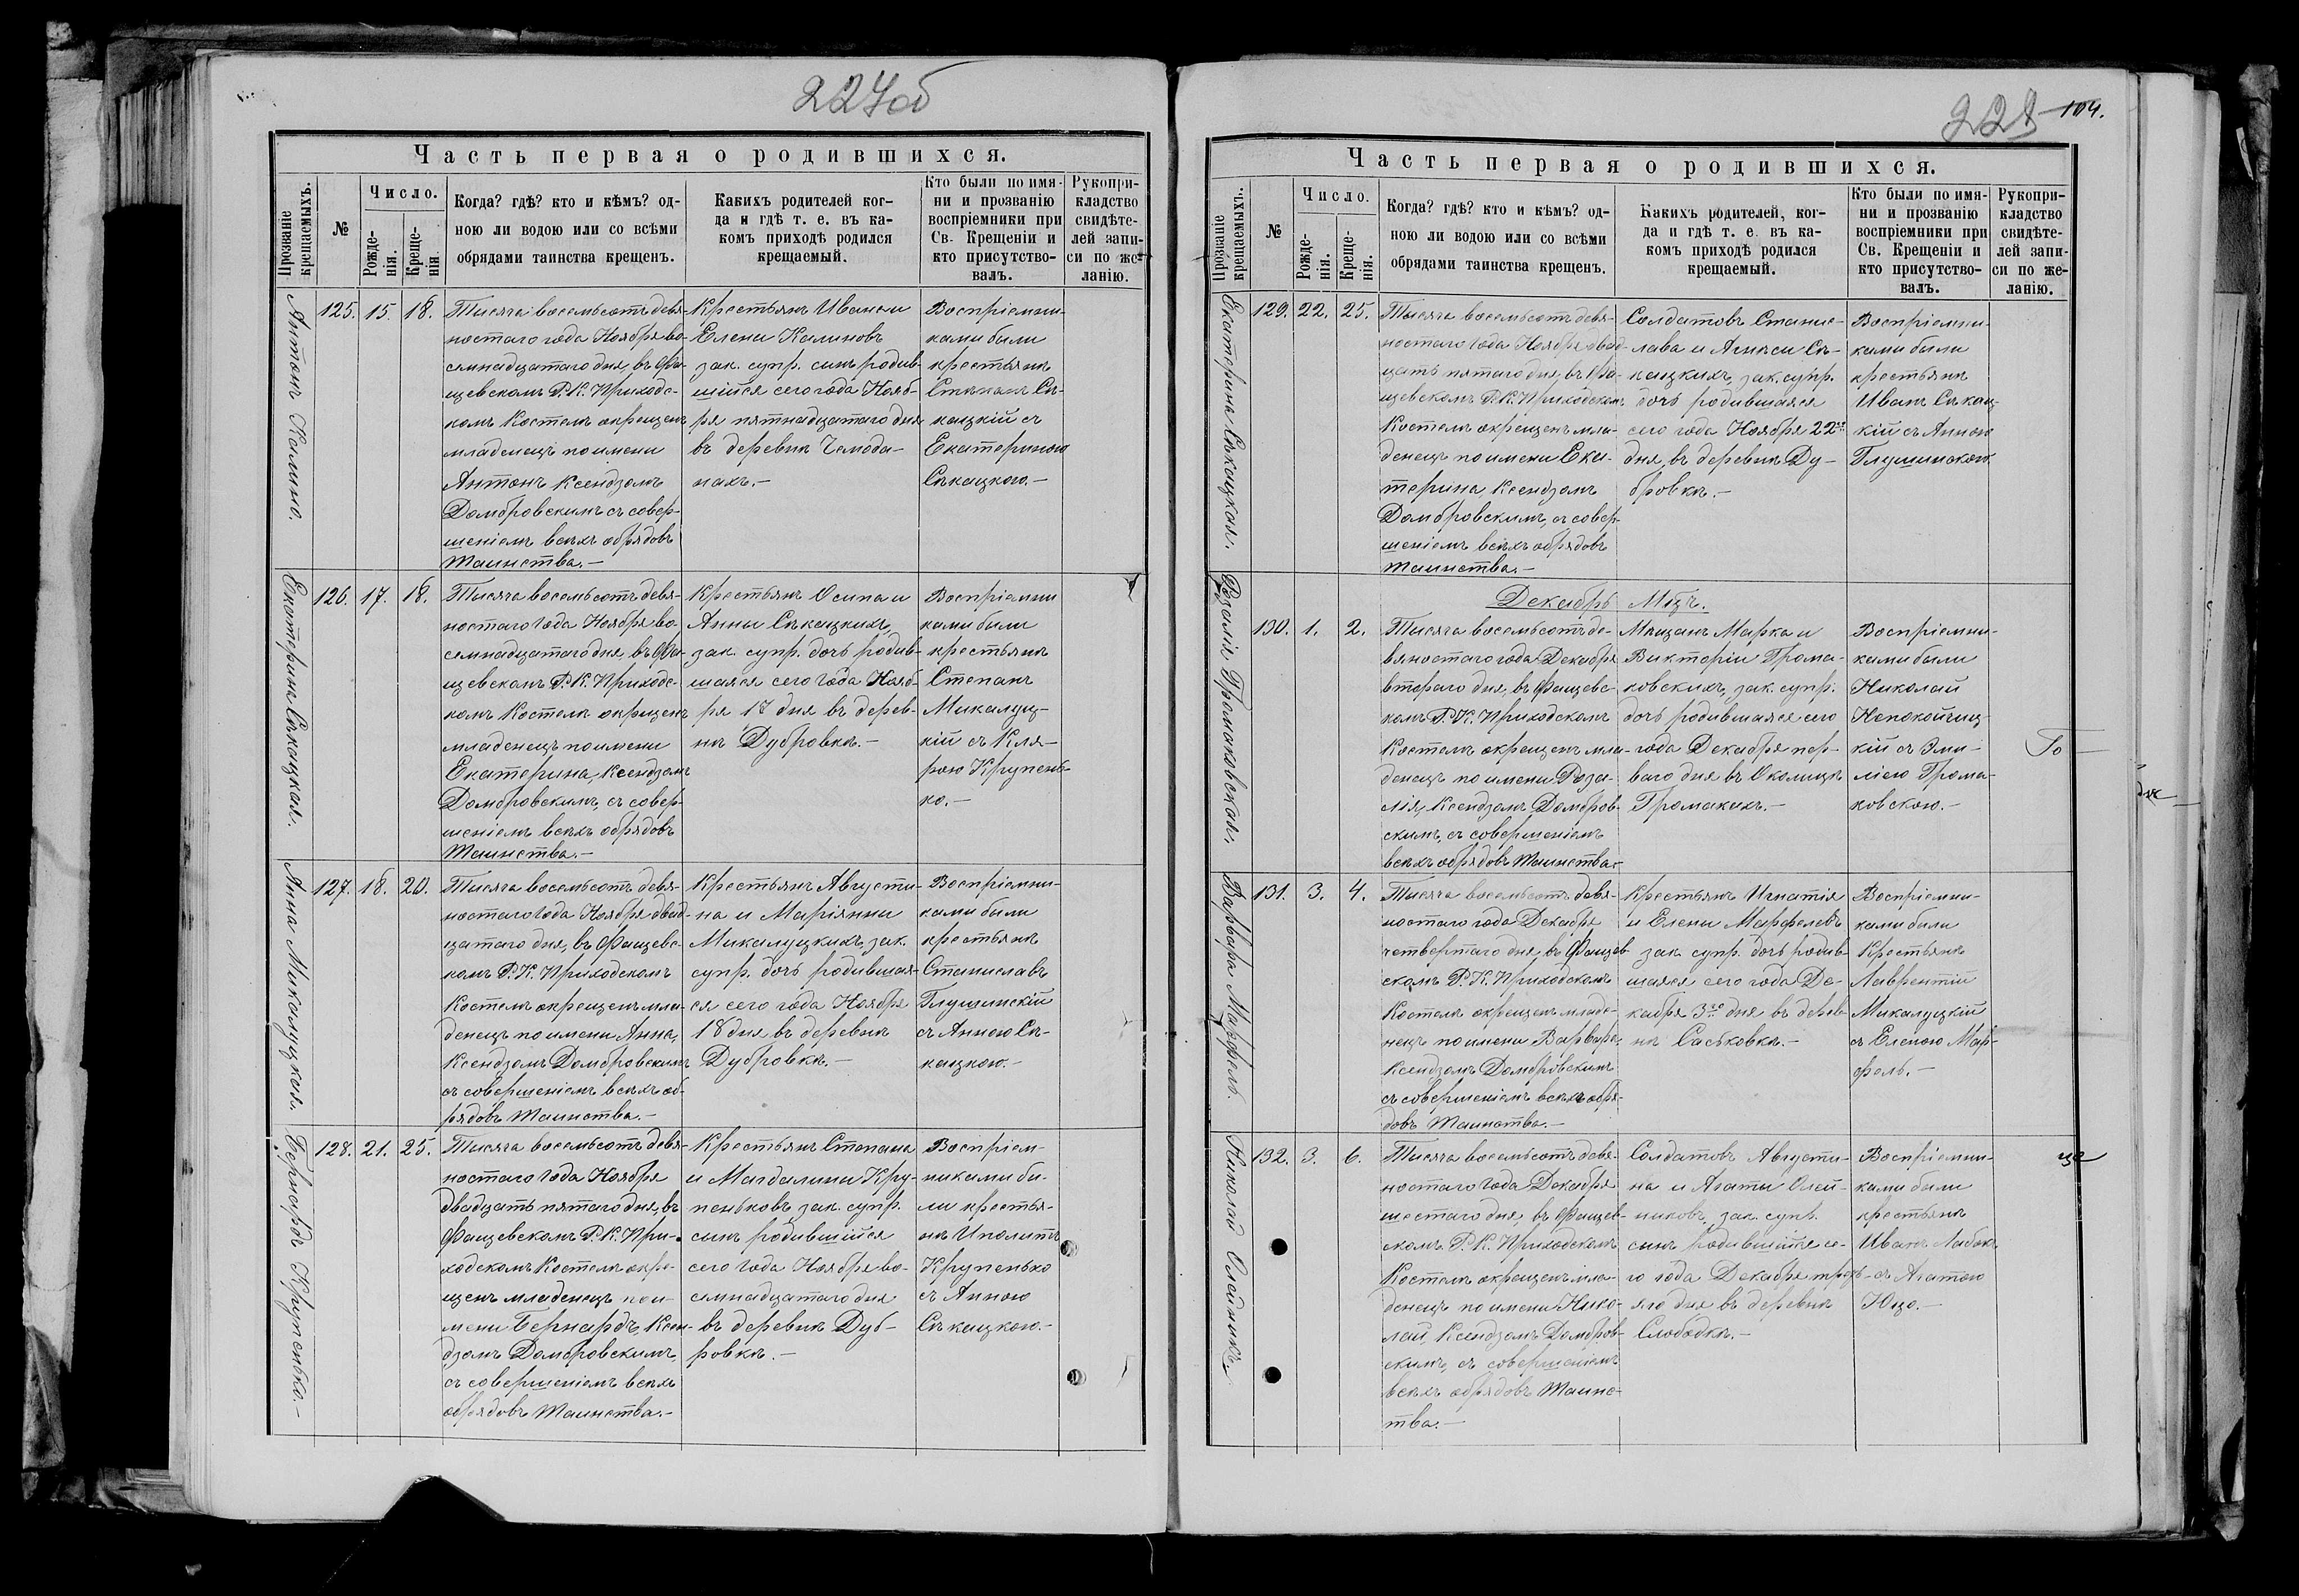 227об
Часть первая о родившихся.
Прозваніе крещаемыхъ.
№
Число.
Рожде-
нія.
Креще-
нія.
Когда? гдѣ? кто и кѣмъ? од-
ною ли водою или со всѣми
обрядами таинства крещенъ.
Какихъ родителей ког-
да и гдѣ т. е. въ ка-
комъ приходѣ родился
крещаемый.
Кто были по имя-
ни и прозванію
воспріемники при
Св. Крещеніи и
кто присутство-
валъ.
Рукопри-
кладство
свидѣте-
лей запи-
си по же-
ланію.
Антонъ Калино.
125. 15. 18.
Тысяча восемьсотъ девя-
ностаго года Ноября во-
семнадцатаго дня, въ Фа-
щевскомъ Р. К. Приходс-
комъ Костелѣ окрещенъ
младенецъ по имени
Антонъ Ксендзомъ
Домбровскимъ съ совер-
шеніемъ всѣхъ обрядовъ
Таинства.-
Крестьянъ Ивана и
Елены Калиновъ
зак. супр. сынъ родив-
шійся сего года Нояб-
ря пятнадцатаго дня
въ деревнѣ Чемода-
нахъ.-
Воспріемни-
ками были
крестьянѣ
Степанъ Сѣ-
кацкій съ
Екатериною
Сѣкацкою.-
Екатерина Сѣкацкая.
126. 17. 18.
Тысяча восемьсотъ девя-
ностаго года Ноября во-
семнадцатаго дня, въ Фа-
щевскомъ Р. К. Приходс-
комъ Костелѣ окрещенъ
младенецъ по имени
Екатерина, Ксендзомъ
Домбровскимъ, съ совер-
шеніемъ всѣхъ обрядовъ
Таинства.-
Крестьянъ Осипа и
Анны Сѣкацкихъ,
зак. супр. дочь родив-
шаяся сего года Нояб-
ря 17 дня въ дерев-
нѣ Дубровкѣ.-
Воспріемни
ками были
крестьянѣ
Степанъ
Микалуц-
кій съ Кля-
рою Крупень-
ко.-
Анна Микалуцкая.
127. 18. 20.
Тысяча восемьсотъ девя-
ностаго года Ноября двад-
цатаго дня, въ Фащевс-
комъ Р. К. Приходскомъ
Костелѣ окрещенъ мла-
денецъ по имени Анна,
Ксендзомъ Домбровскимъ
съ совершеніемъ всѣхъ об-
рядовъ Таинства.-
Крестьянъ Августи-
на и Маріянны
Микалуцкихъ, зак.
супр. дочь родившая-
ся сего года Ноября
18 дня въ деревнѣ
Дубровкѣ.-
Воспріемни-
ками были
крестьянѣ
Станиславъ
Глушинскій
съ Анною Сѣ-
кацкою.-
Бернардъ Крупенько.-
128. 21. 25.
Тысяча восемьсотъ девя-
ностаго года Ноября
двадцать пятаго дня, въ
Фащевскомъ Р. К. При-
ходскомъ Костелѣ окре-
щенъ младенецъ по и-
мени Бернардъ, Ксен-
дзомъ Домбровскимъ,
съ совершеніемъ всѣхъ
обрядовъ Таинства.-
Крестьянъ Степана
и Магдалины Кру-
пеньковъ зак. супр.
сынъ родившійся
сего года Ноября во-
семнадцатаго дня
въ деревнѣ Дуб-
ровкѣ.-
Воспріем-
никами бы-
ли крестья-
нѣ Иполитъ
Крупенько
съ Анною
Сѣкацкою.-
228 104.
Часть первая о родившихся.
Прозваніе крещаемыхъ.
№
Число.
Рожде-
нія.
Креще-
нія.
Когда? гдѣ? кто и кѣмъ? од-
ною ли водою или со всѣми
обрядами таинства крещенъ.
Какихъ родителей, ког-
да и гдѣ т. е. въ ка-
комъ приходѣ родился
крещаемый.
Кто были по имя-
ни и прозванію
воспріемники при
Св. Крещеніи и
кто присутство-
валъ.
Рукопри-
кладство
свидѣте-
лей запи-
си по же-
ланію.
Екатерина Сѣкацкая.
129. 22. 25.
Тысяча восемьсотъ девя-
ностаго года Ноября двад-
цать пятаго дня, въ Фа-
щевскомъ Р. К. Приходскомъ
Костелѣ окрещенъ мла-
денецъ по имени Ека-
терина, Ксендзомъ
Домбровскимъ, съ совер-
шеніемъ всѣхъ обрядовъ
Таинства.-
Солдатовъ Станис-
лава и Агнѣсы Сѣ-
кацкихъ, зак. супр.
дочь родившаяся
сего года Ноября 22го
дня, въ деревнѣ Ду-
бровкѣ.-
Воспріемни-
ками были
крестьянѣ
Иванъ Сѣкац-
кій съ Анною
Глушинскою.
Розалія Громаковская.
Декабрь Мѣц.
130. 1. 2.
Тысяча восемьсотъ де-
вяностаго года Декабря
втораго дня, въ Фащевс-
комъ Р. К. Приходскомъ
Костелѣ окрещенъ мла-
денецъ по имени Роза-
лія, Ксендзомъ Домбров-
скимъ, съ совершеніемъ
всѣхъ обрядовъ Таинства.-
Мѣщанъ Марка и
Викторіи Грома-
ковскихъ, зак. супр.
дочь родившаяся сего
года Декабря пер-
ваго дня въ Околицѣ
Громакахъ.-
Воспріемни-
ками были
Николай
Непокойчиц-
кій съ Эми-
ліею Грома-
ковскою.-
То
Варвара Марфель.
131. 3. 4.
Тысяча восемьсотъ девя-
ностаго года Декабря
четвертаго дня, въ Фащев-
скомъ Р. К. Приходскомъ
Костелѣ окрещенъ младе-
нецъ по имени Варвара,
Ксендзомъ Домбровскимъ
съ совершеніемъ всѣхъ обря-
довъ Таинства.-
Крестьянъ Игнатія
и Елены Марфелевъ
зак. супр. дочь родив-
шаяся сего года Де-
кабря 3го дня въ дерев-
нѣ Саськовкѣ.-
Воспріемни-
ками были
Крестьянѣ
Лаврентій
Микалуцкій
съ Еленою Мар-
фель.-
Николай Олейникъ.
132. 3. 6.
Тысяча восемьсотъ девя-
ностаго года Декабря
шестаго дня, въ Фащев-
скомъ Р. К. Приходскомъ
Костелѣ окрещенъ мла-
денецъ по имени Нико-
лай, Ксендзомъ Домбров-
скимъ, съ совершеніемъ
всѣхъ обрядовъ Таинс-
тва.-
Солдатовъ Августи-
на и Агаты Олей-
никовъ, зак. супр.
сынъ родившійся се-
го года Декабря треть-
яго дня въ деревнѣ
Слободкѣ.-
Воспріемни-
ками были
крестьянѣ
Иванъ Лабокъ
съ Агатою
Юцо.-